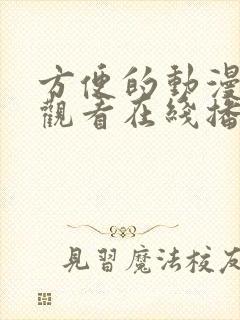 方便的動漫
觀看在綫播
見習魔法校友